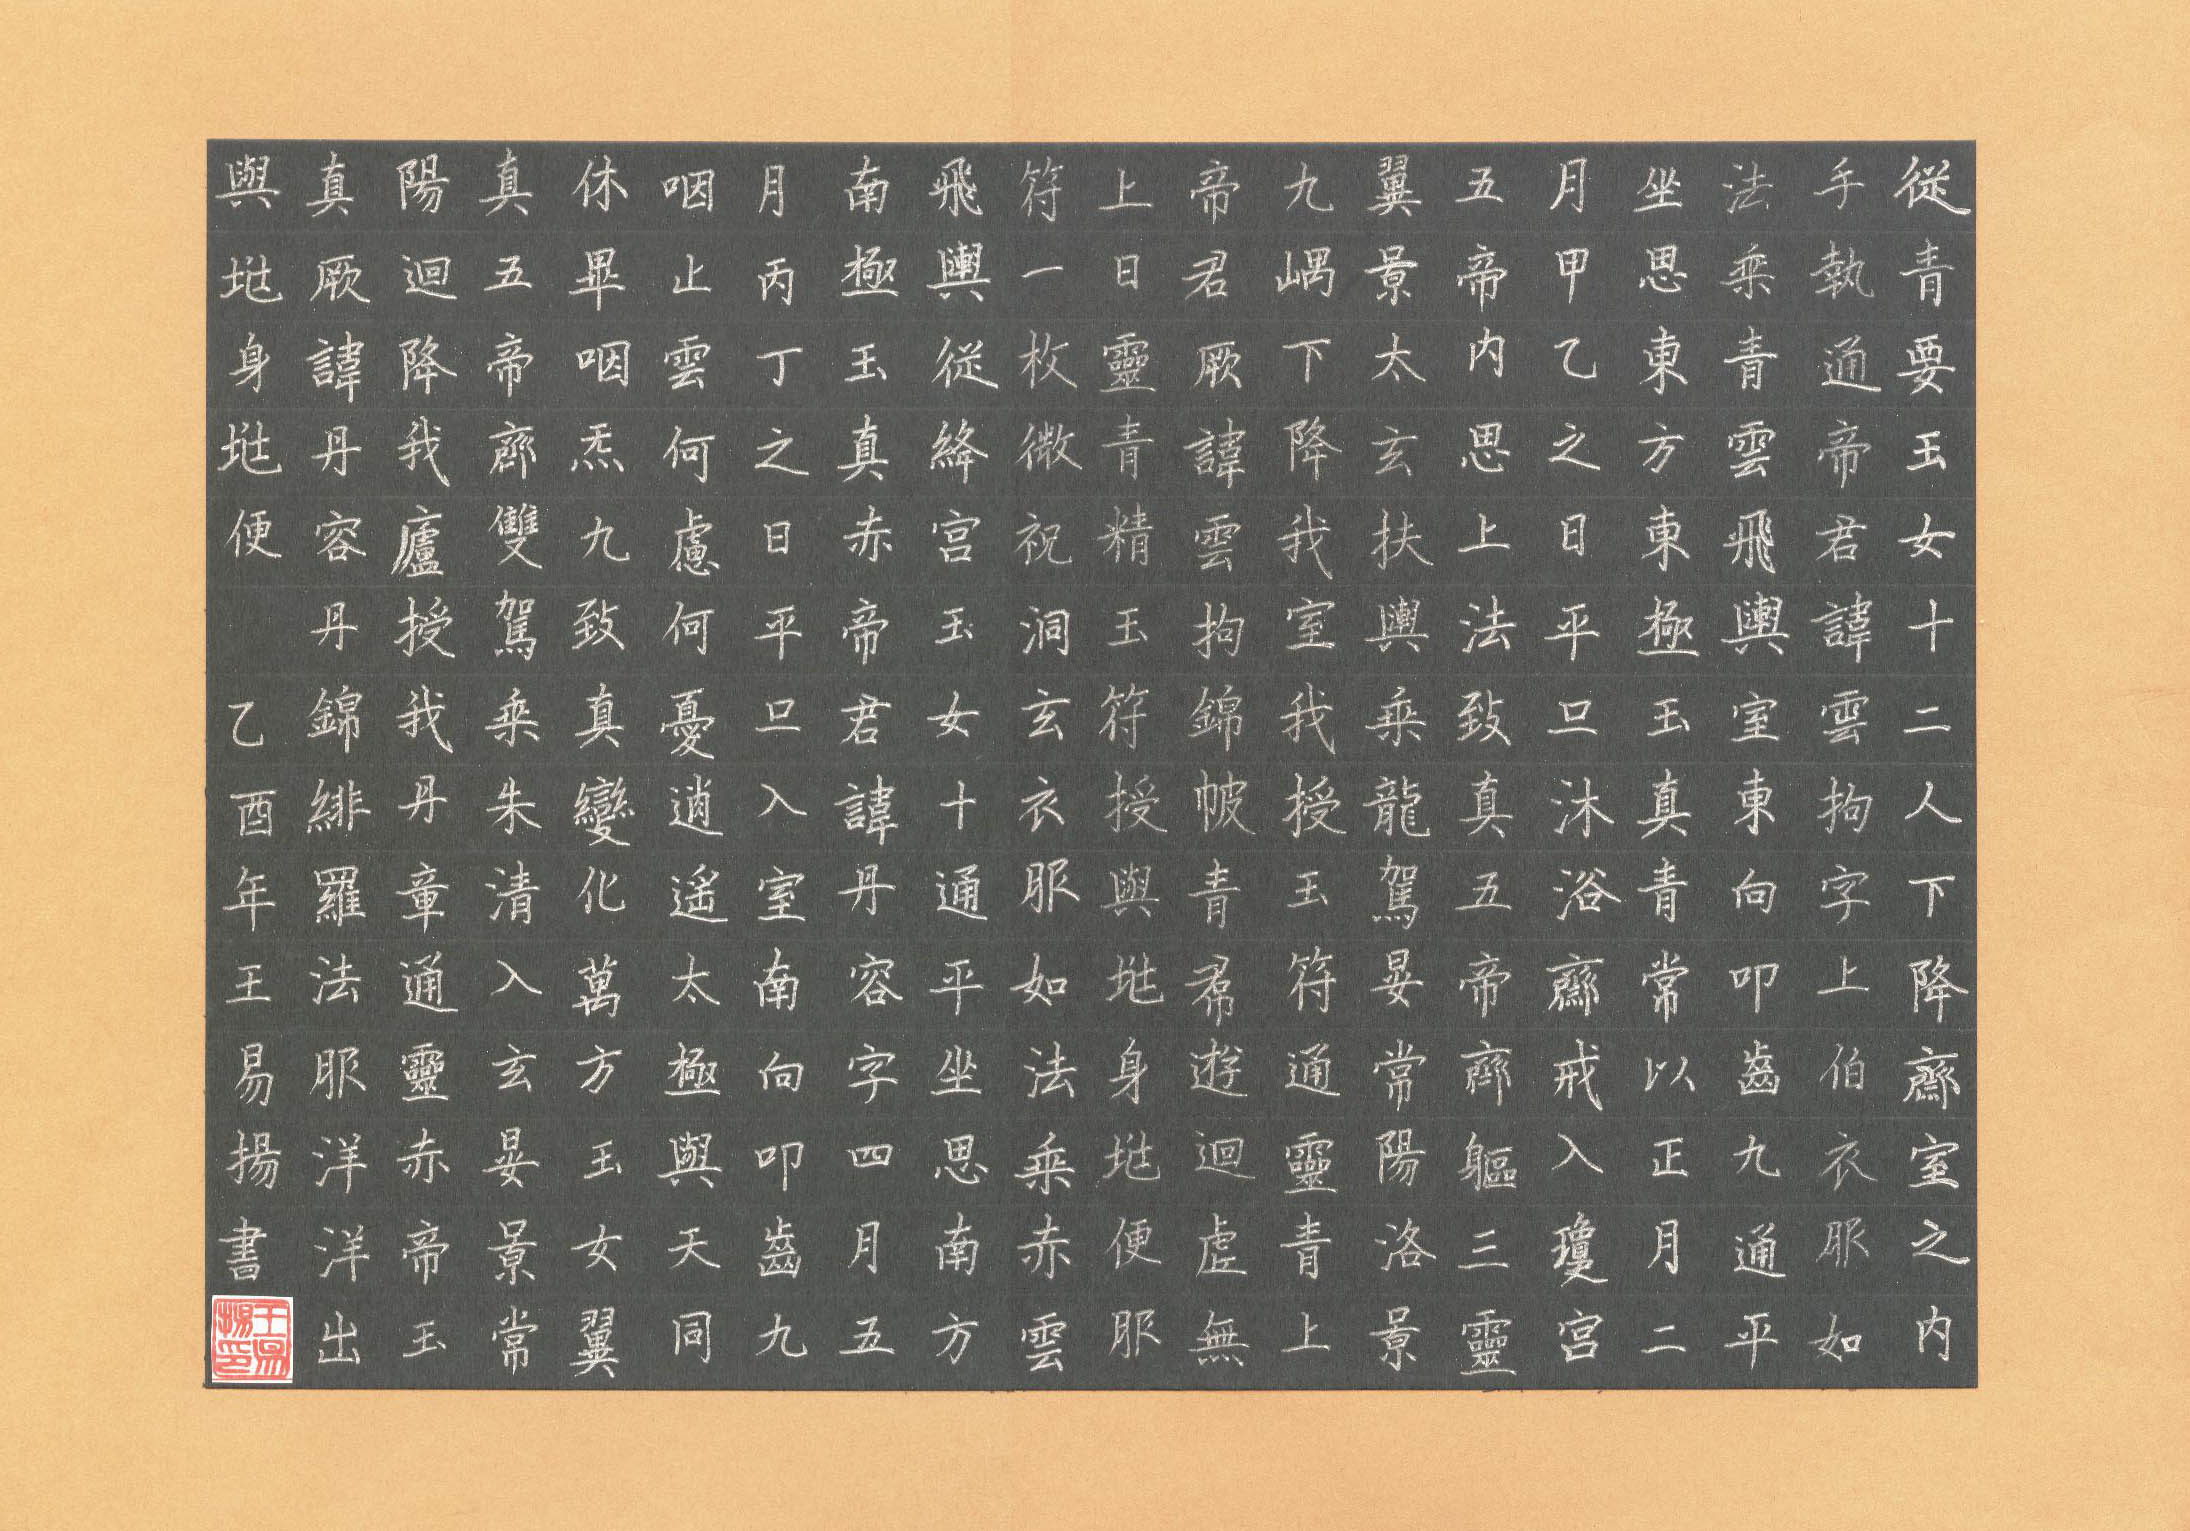 從青要玉女十二人下降齋室之内
手執通帝君諱雲拘字上伯衣服如
法乘青雲飛輿室東向叩齒九通平
坐思東方東極玉真青常以正月二
月甲乙之日平旦沐浴齋戒入瓊宫
五帝内思上法致真五帝齊軀三靈
翼景太玄扶輿乘龍駕晏常陽洛景
九嵎下降我室我授玉符通靈青上
帝君厥諱雲拘錦帔青帬遊迴虛無
上日靈青精玉符授與地身地便服
符一枚微祝洞玄衣服如法乘赤雲
飛輿從絳宫玉女十通平坐思南方
南極玉真赤帝君諱丹容字四月五
月丙丁之日平旦入室南向叩齒九
咽止雲何慮何憂逍遥太極與天同
休畢咽炁九致真變化萬方玉女翼
真五帝齊雙駕乘朱清入玄晏景常
陽迴降我廬授我丹章通靈赤帝玉
真厥諱丹容丹錦緋羅法服洋洋出
與地身地便 乙酉年王易揚書